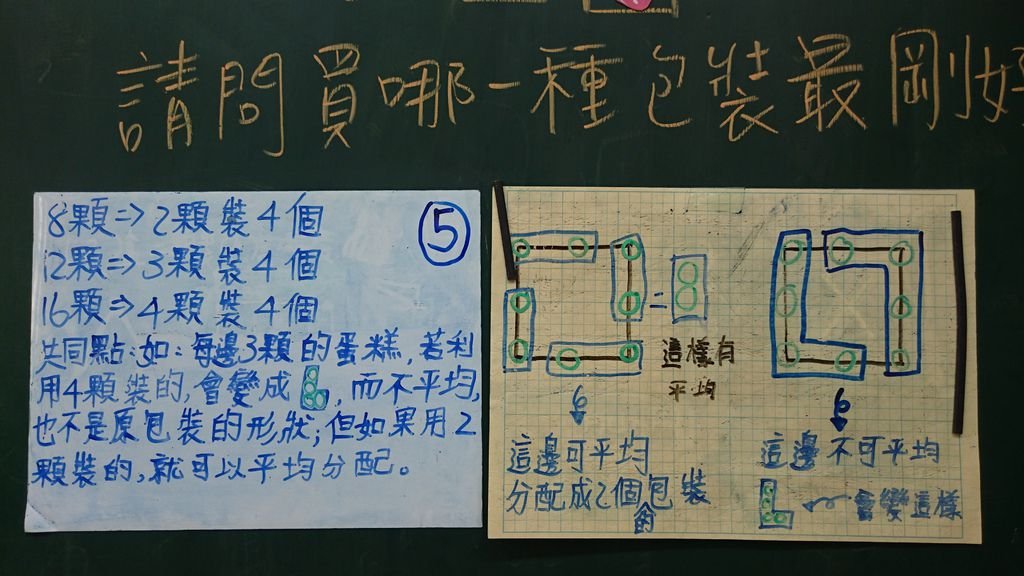 請問買哪一種包裝最剛好
8顆⇒2顆裝4個
⑤
12顆⇒3顆裝4個
16顆⇒4顆裝4個
共同點:如:每邊3顆的蛋糕,若利
用4顆裝的,會變成 ,而不平均,
也不是原包裝的形狀;但如果用2
顆裝的,就可以平均分配。
=
這樣有
平均
這邊可平均
分配成2個包裝
的
這邊不可平均
會變這樣